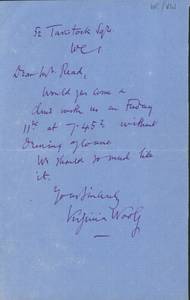 52 Tavistock Sqre
WC1
Dear Mr Read,
Would you come &
dine with us on Friday
11th at 7.45? without
dressing of course
We should so much like
it.
Yours sincerely
Virginia Woolf